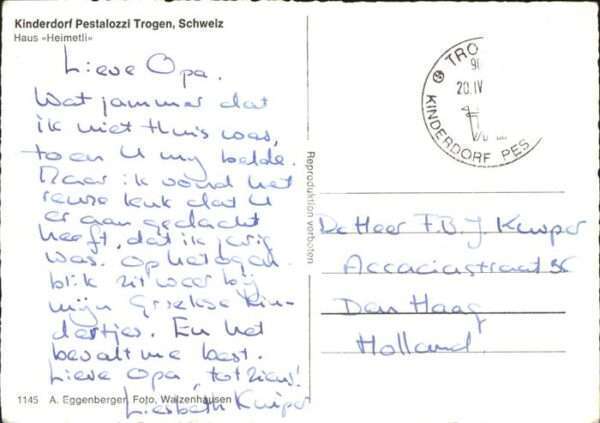 Kinderdorf Pestalozzi Trogen, Schweiz
Haus «Heimetli»
Lieve Opa.
Wat jammer dat
ik niet thuis was,
toen U my belde.
Maar ik vond het
reuze leuk dat U
er aan gedacht
heeft, dat ik jarig
was. Op het ogen-
blik zit weer by
mijn Griekse kin-
dertjes. En het
bevalt me best.
Lieve Opa, tot ziens!
Liesbeth Kuiper
1145 A. Eggenberger, Foto, Walzenhausen
Reproduktion verboten
TRO
90
20.IV
KINDERDORF PES
De Heer F.B.J. Kuiper
Accaciastraat
Den Haag
Holland